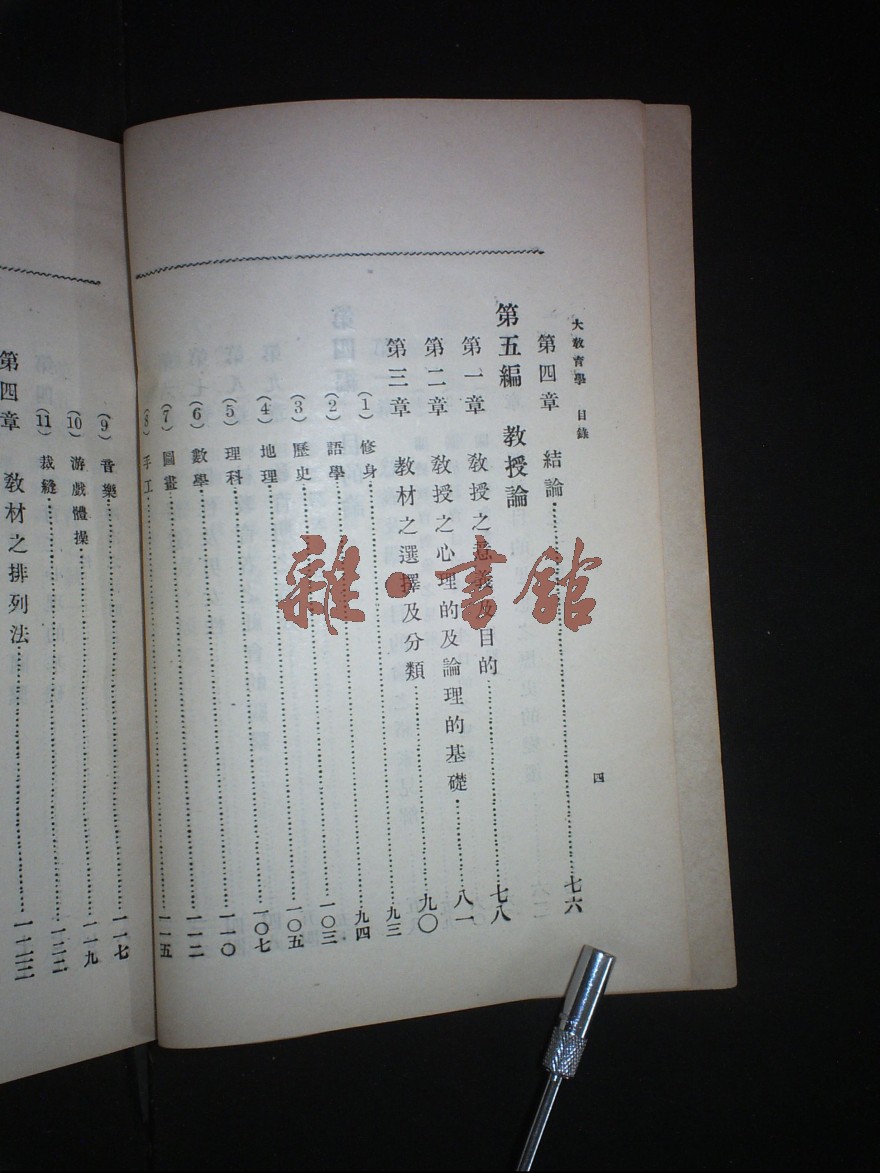 大教育學 目錄 四
第四章 結論 七六
第五編 教授論
第一章 教授之意義及目的 七八
第二章 教授之心理的及論理的基礎 八一
第三章 教材之選擇及分類 九〇
(1) 修身 九三
(2) 語學 九四
(3) 歷史 一〇三
(4) 地理 一〇五
(5) 理科 一〇七
(6) 數學 一一〇
(7) 圖畫 一一二
(8) 手工 一一五
(9) 音樂 一一七
(10) 游戲體操 一一九
(11) 裁縫 一二二
第四章 教材之排列法 一二三
雜·書館